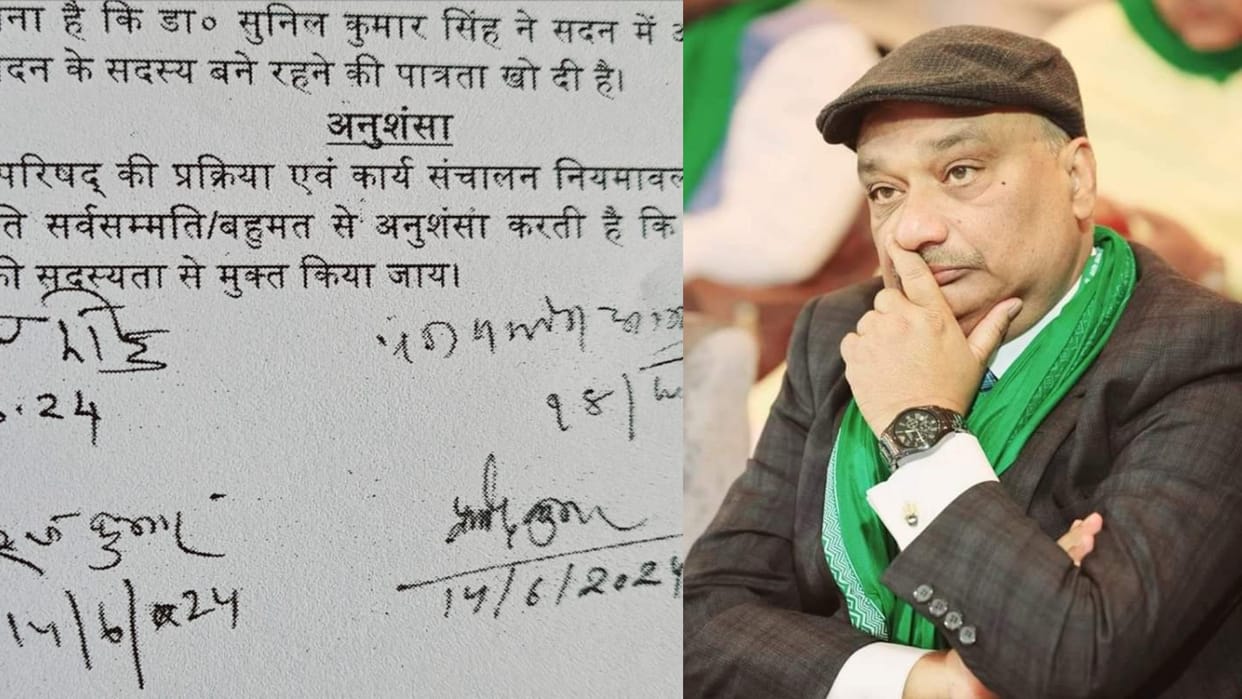 ना है कि डा० सुनिल कुमार सिंह ने सदन में
दन के सदस्य बने रहने की पात्रता खो दी है।
अनुशंसा
परिषद् की प्रक्रिया एवं कार्य संचालन नियमावल
ति सर्वसम्मति/बहुमत से अनुशंसा करती है कि
की सदस्यता से मुक्त किया जाय।
.24
कुमार
14/6/24
14/6/2024